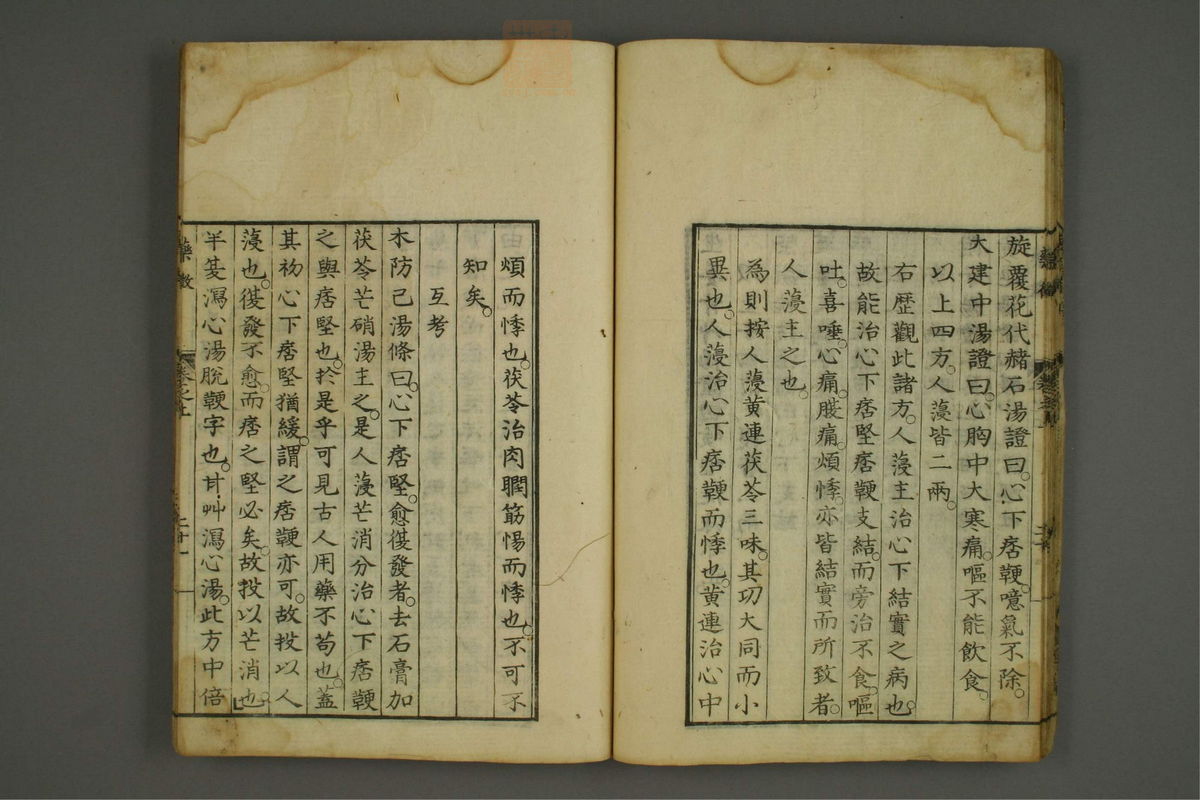 旋覆花代赭石湯證曰。心下痞鞕。噫氣不除。
大建中湯證曰。心胸中大寒痛。嘔不能飲食。
以上四方。人薓皆二兩。
右歷觀此諸方。人薓主治心下結實之病也。
故能治心下痞堅痞鞕支結。而旁治不食。嘔
吐。喜唾。心痛。腹痛。煩悸。亦皆結實而所致者。
人薓主之也。
為則按人薓黃連茯苓三味。其功大同而小
異也。人薓治心下痞鞕而悸也。黃連治心中
煩而悸也。茯苓治肉瞤筋惕而悸也。不可不
知矣。
互考
木防己湯條曰。心下痞堅。愈復發者。去石膏加
茯苓芒硝湯主之。是人薓芒消分治心下痞鞕
之與痞堅也。於是乎可見古人用藥不苟也。蓋
其初心下痞堅猶緩。謂之痞鞕亦可。故投以人
薓也。復發不愈。而痞之堅必矣。故投以芒消也。
半夏瀉心湯脫鞕字也。甘艸瀉心湯。此方中倍
藥徵
卷之上
二十一